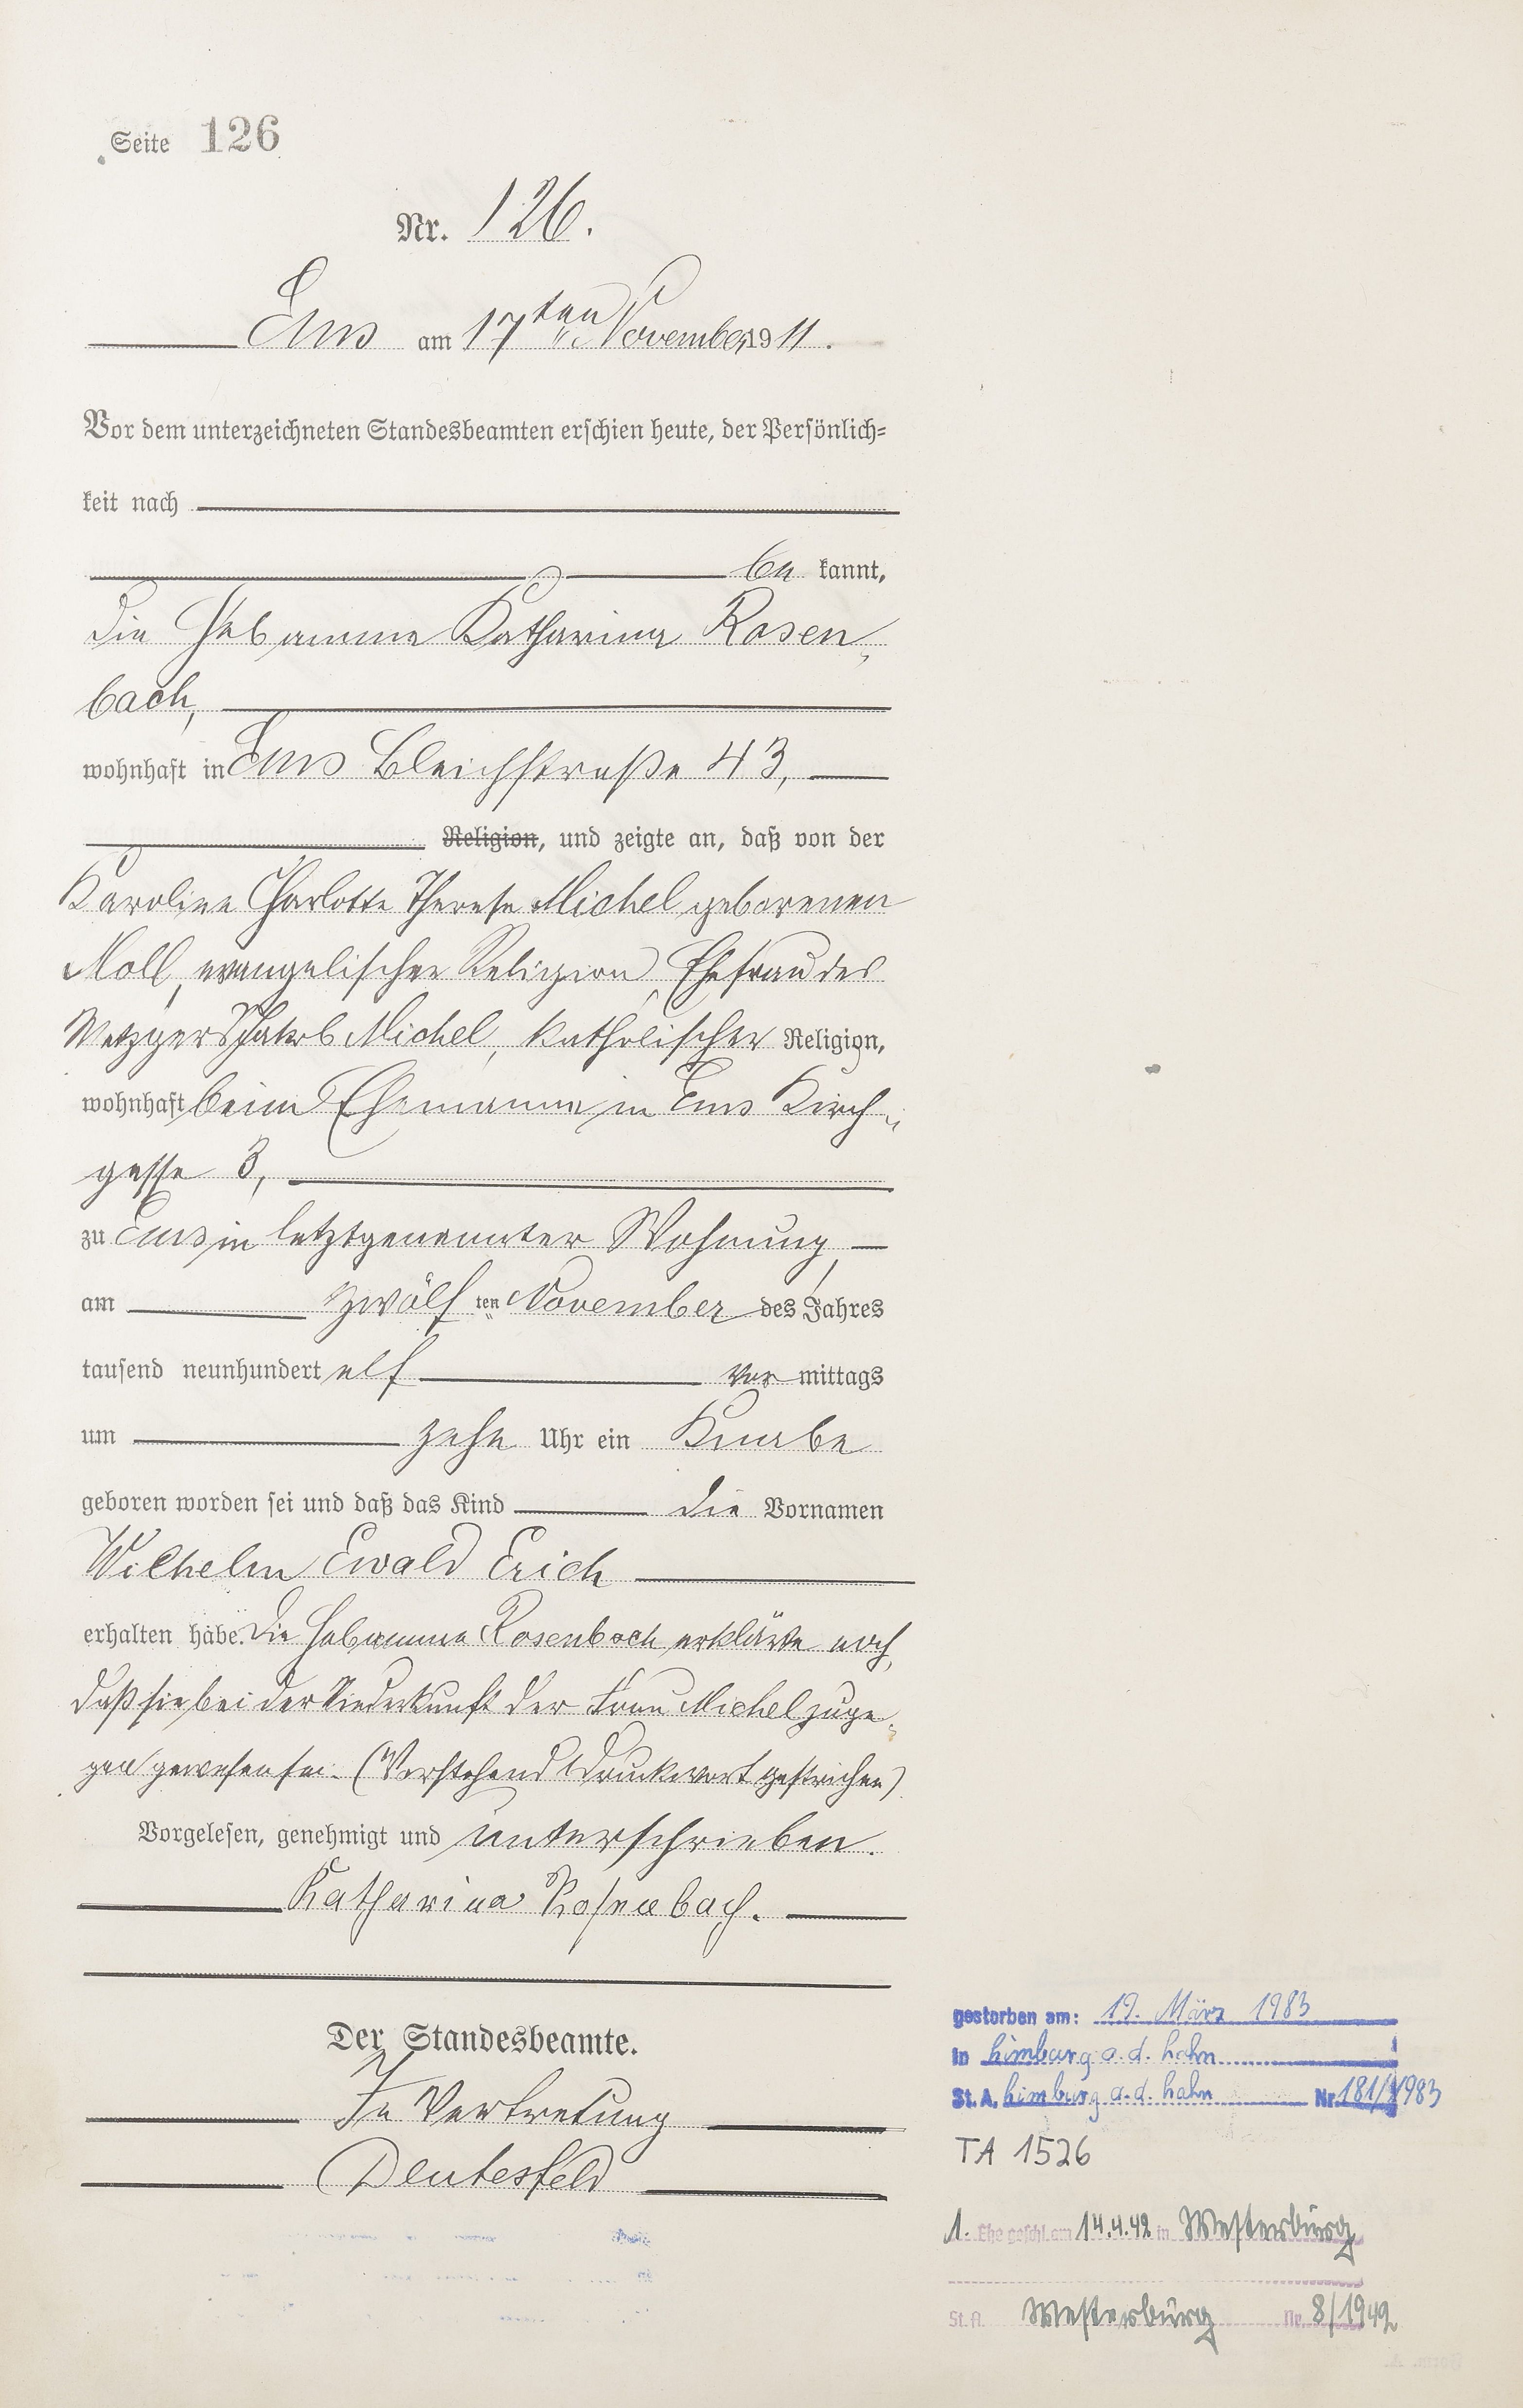 Seite 126
Nr. 126.
Ems am 17ten November 1911.
Vor dem unterzeichneten Standesbeamten erschien heute, der Persönlich=
keit nach
be kannt,
die Hebamme Katharina Rosen„
bach,
wohnhaft in Ems Bleichstraße 43,
Religion, und zeigte an, daß von der
Karoline Charlotte Therese Michel geborenen
Noll, evangelischer Religion, Ehefrau des
Metzgers Jakob Michel, katholischer Religion,
wohnhaft beim Ehemanne in Ems Kirch„
gasse 3,
zu Ems in letztgenannter Wohnung,
am zwölf ten November des Jahres
tausend neunhundert elf vor mittags
um zehn Uhr ein Knabe
geboren worden sei und daß das Kind die Vornamen
Wilhelm Ewald Erich
erhalten habe. Die Hebamme Rosenbach erklärte noch,
daß sie bei der Niederkunft der Frau Michel zuge„
gen gewesen sei. (Vorstehend 1 Druckwort gestrichen)
Vorgelesen, genehmigt und unterschrieben.
Katharina Rosenbach.
Der Standesbeamte.
In Vertretung
Deutesfeld
gestorben am: 19. März 1983
in Limburg a. d. Lahn
St. A. Limburg a. d. Lahn Nr. 181/1983
TA 1526
1. Ehe geschl. am 14.4.42 in Westerburg
St. A. Westerburg Nr. 8/1942